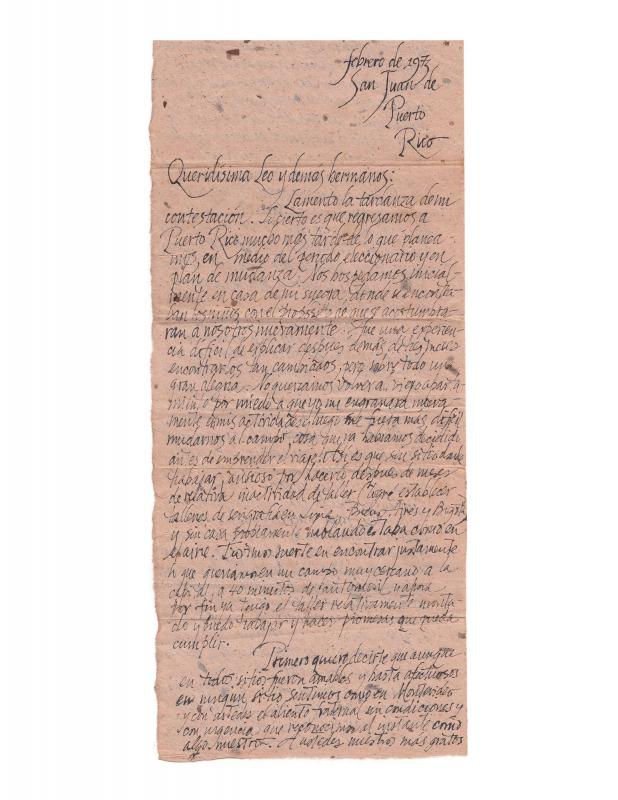 febrero de 1973
San Juan de
Puerto
Rico
Queridísima Leo y demás hermanos:
Lamento la tardanza de mi
contestación. Lo cierto es que regresamos a
Puerto Rico mucho más tarde de lo que planea-
mos, en medio del período eleccionario y en
plan de mudanza. Nos hospedamos inicial-
mente en casa de mi suegra, donde se encontra-
ban los niños con el propósito de que se acostumbra-
ran a nosotros nuevamente. Fue una experien-
cia difícil de explicar después de más de seis meses
encontrarlos tan cambiados, pero sobre todo una
gran alegría. No queríamos volver a viejo aparta-
miento por miedo a que yo me engranara nueva-
mente en mis actividades y luego me fuera más difícil
mudarnos al campo, cosa que ya habíamos decidido
antes de emprender el viaje. Así es que sin sitio donde
trabajar, ansioso por hacerlo después de meses
de relativa inactividad de taller (logré establecer
talleres de serigrafía en Lima, Buenos Aires y Bogotá)
y sin casa propiamente hablando estaba como en
el aire. Tuvimos suerte en encontrar justamente
lo que queríamos en un campo muy cercano a la
capital, a 40 minutos de automóvil y ahora
por fin ya tengo el taller relativamente monta-
do y puedo trabajar y hacer promesas que pueda
cumplir.
Primero quiero decirte que aunque
en todos sitios fueron amables y hasta afectuosos
en ningún sitio sentimos como en Montevideo
y con ustedes el aliento fraternal sin condiciones y
con urgencia que reconocimos al instante como
algo nuestro. A ustedes nuestro más gratos